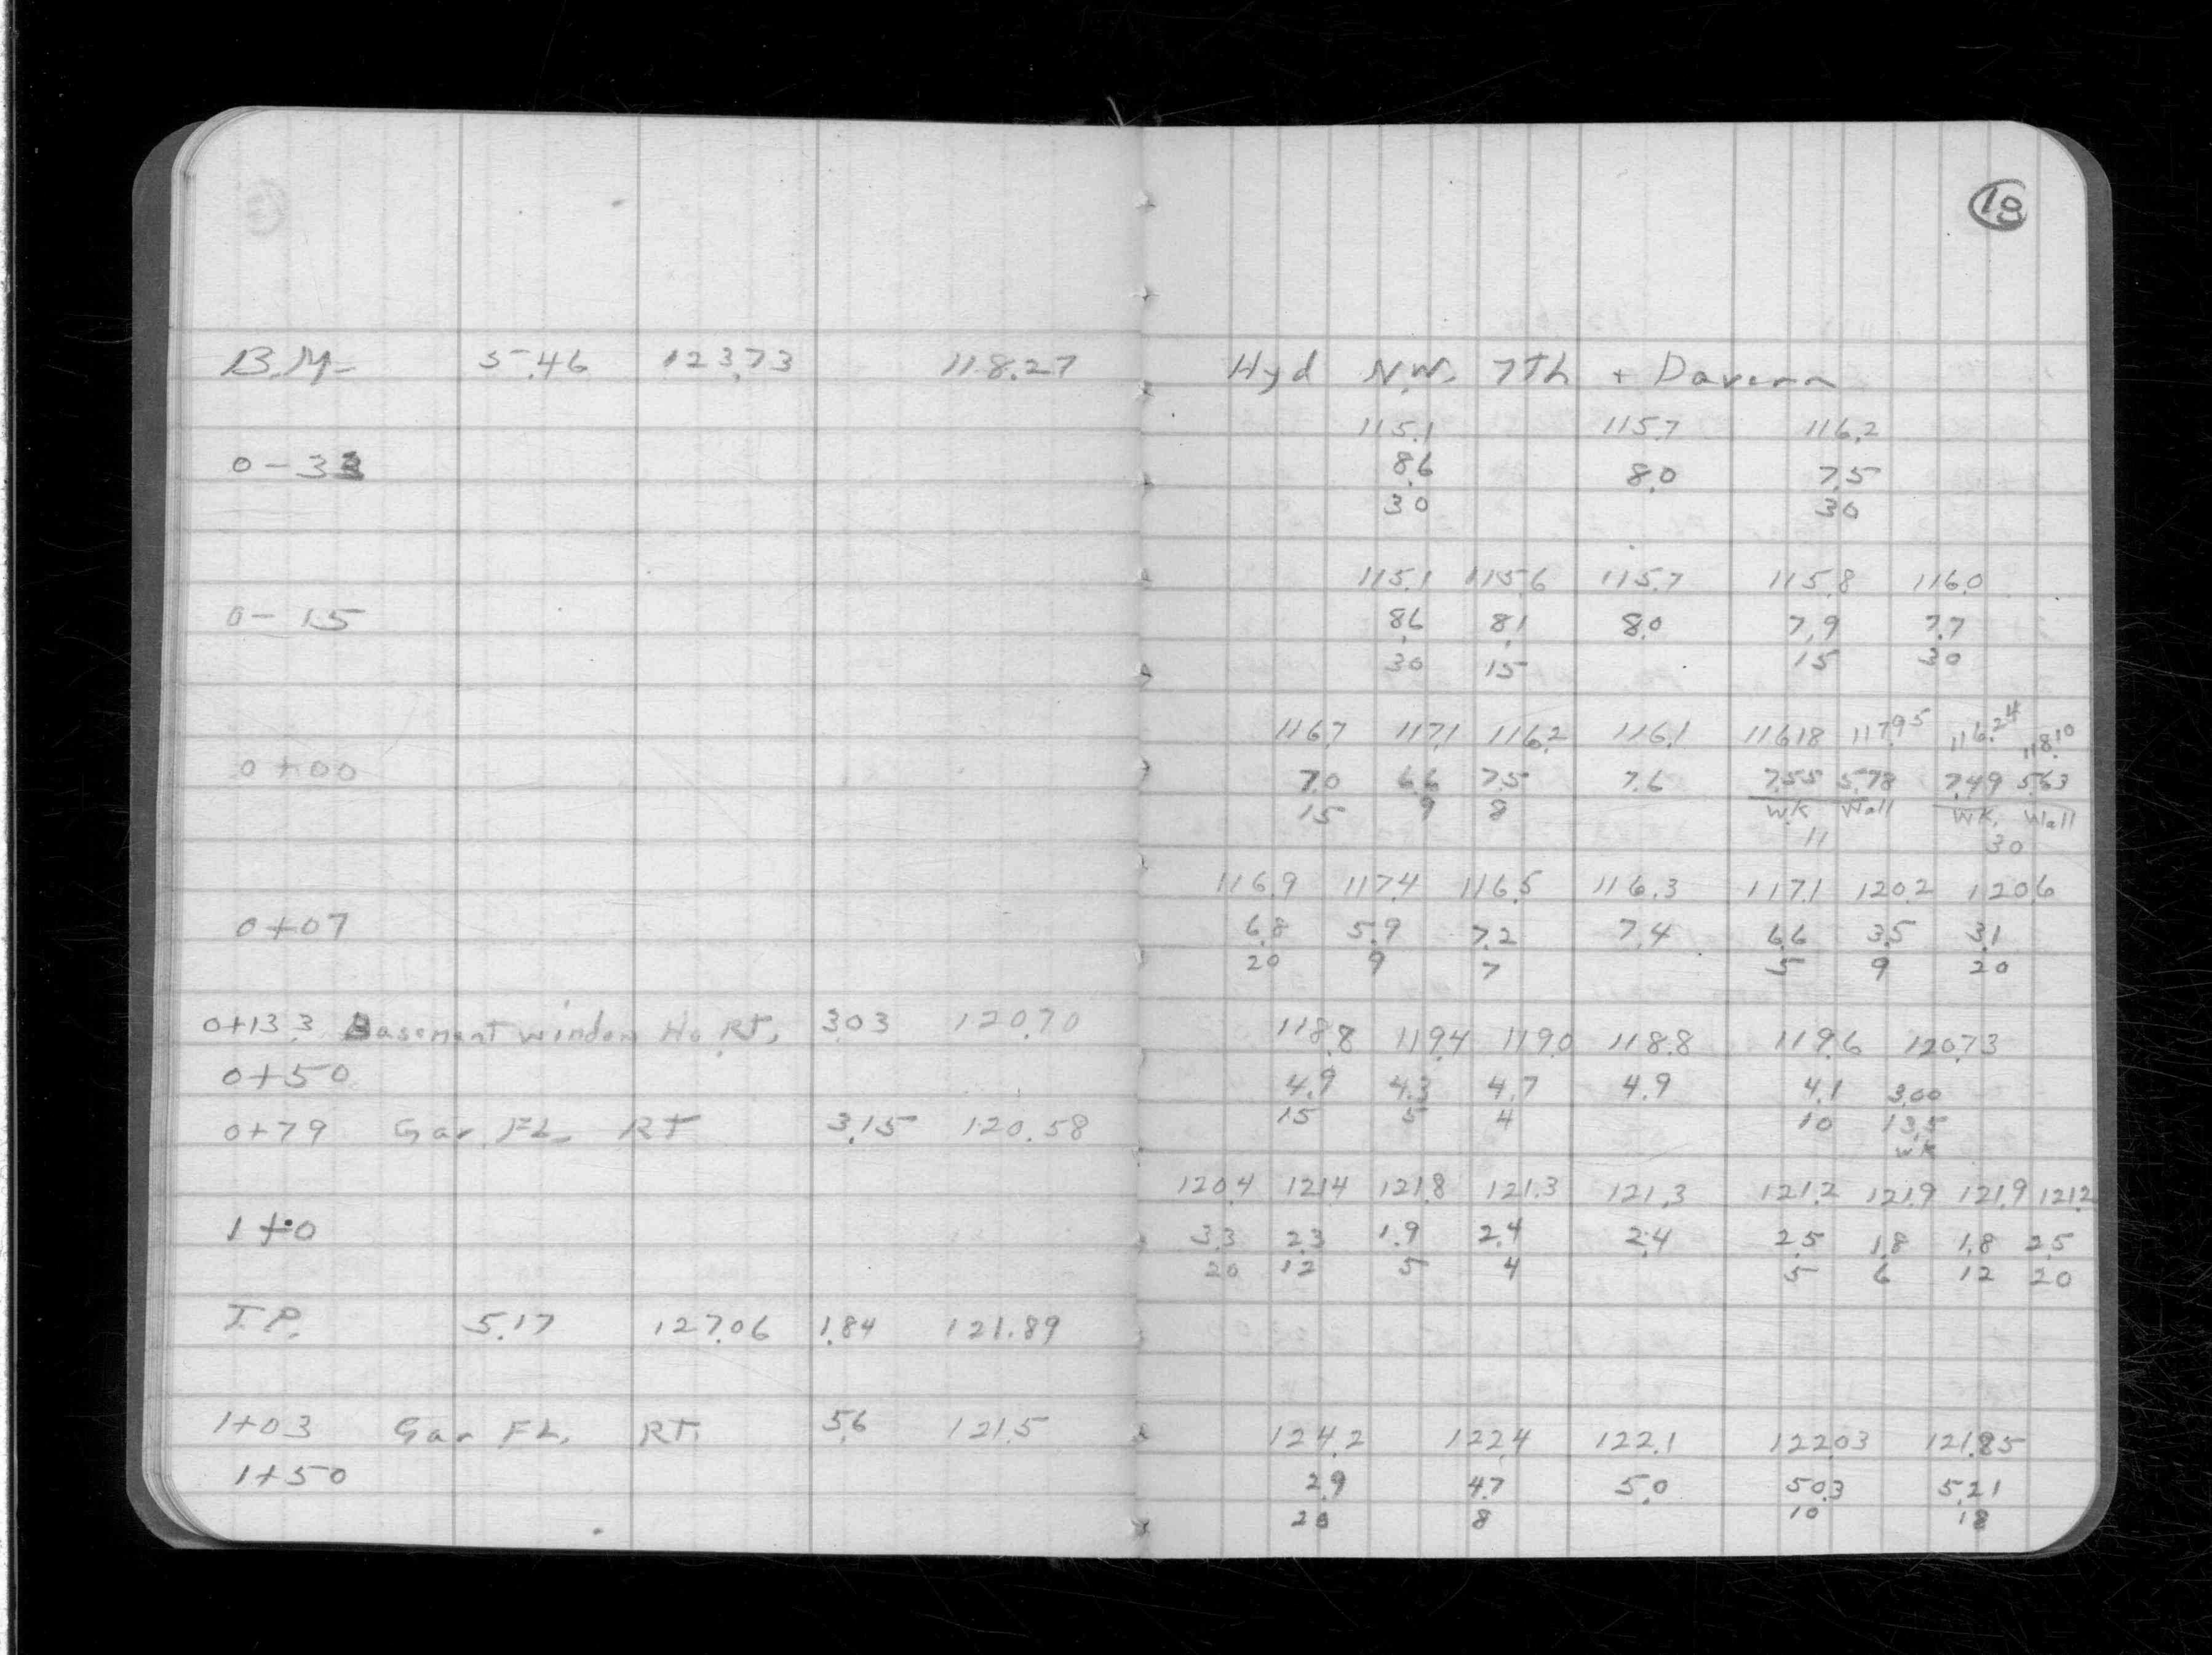 18
B.M- 5.46 123.73 118.27 Hyd N.W. 7Th + Davern
115.1 115.7 116.2
0-33 8.6 8.0 7.5
30 30
115.1 115.6 115.7 115.8 116.0
0-15 8.6 8.1 8.0 7.9 7.7
30 15 15 30
116.7 117.1 116.2 116.1 116.18 117.95 116.24 118.10
0+00 7.0 6.6 7.5 7.6 7.55 5.78 7.49 5.63
15 9 8 WK Wall WK. Wall
11 30
116.9 117.4 116.5 116.3 117.1 120.2 120.6
0+07 6.8 5.9 7.2 7.4 6.6 3.5 3.1
20 9 7 5 9 20
0+13.3 Basement window Ho RT. 3.03 120.70 118.8 119.4 119.0 118.8 119.6 120.73
0+50 4.9 4.3 4.7 4.9 4.1 3.00
0+79 Gar FL. RT 3.15 120.58 15 5 4 10 13.5
WK
120.4 121.4 121.8 121.3 121.3 121.2 121.9 121.9 121.2
1+0 3.3 2.3 1.9 2.4 2.4 2.5 1.8 1.8 2.5
20 12 5 4 5 6 12 20
T.P. 5.17 127.06 1.84 121.89
1+03 Gar FL. RT. 5.6 121.5 124.2 122.4 122.1 122.03 121.85
1+50 2.9 4.7 5.0 5.03 5.21
20 8 10 18